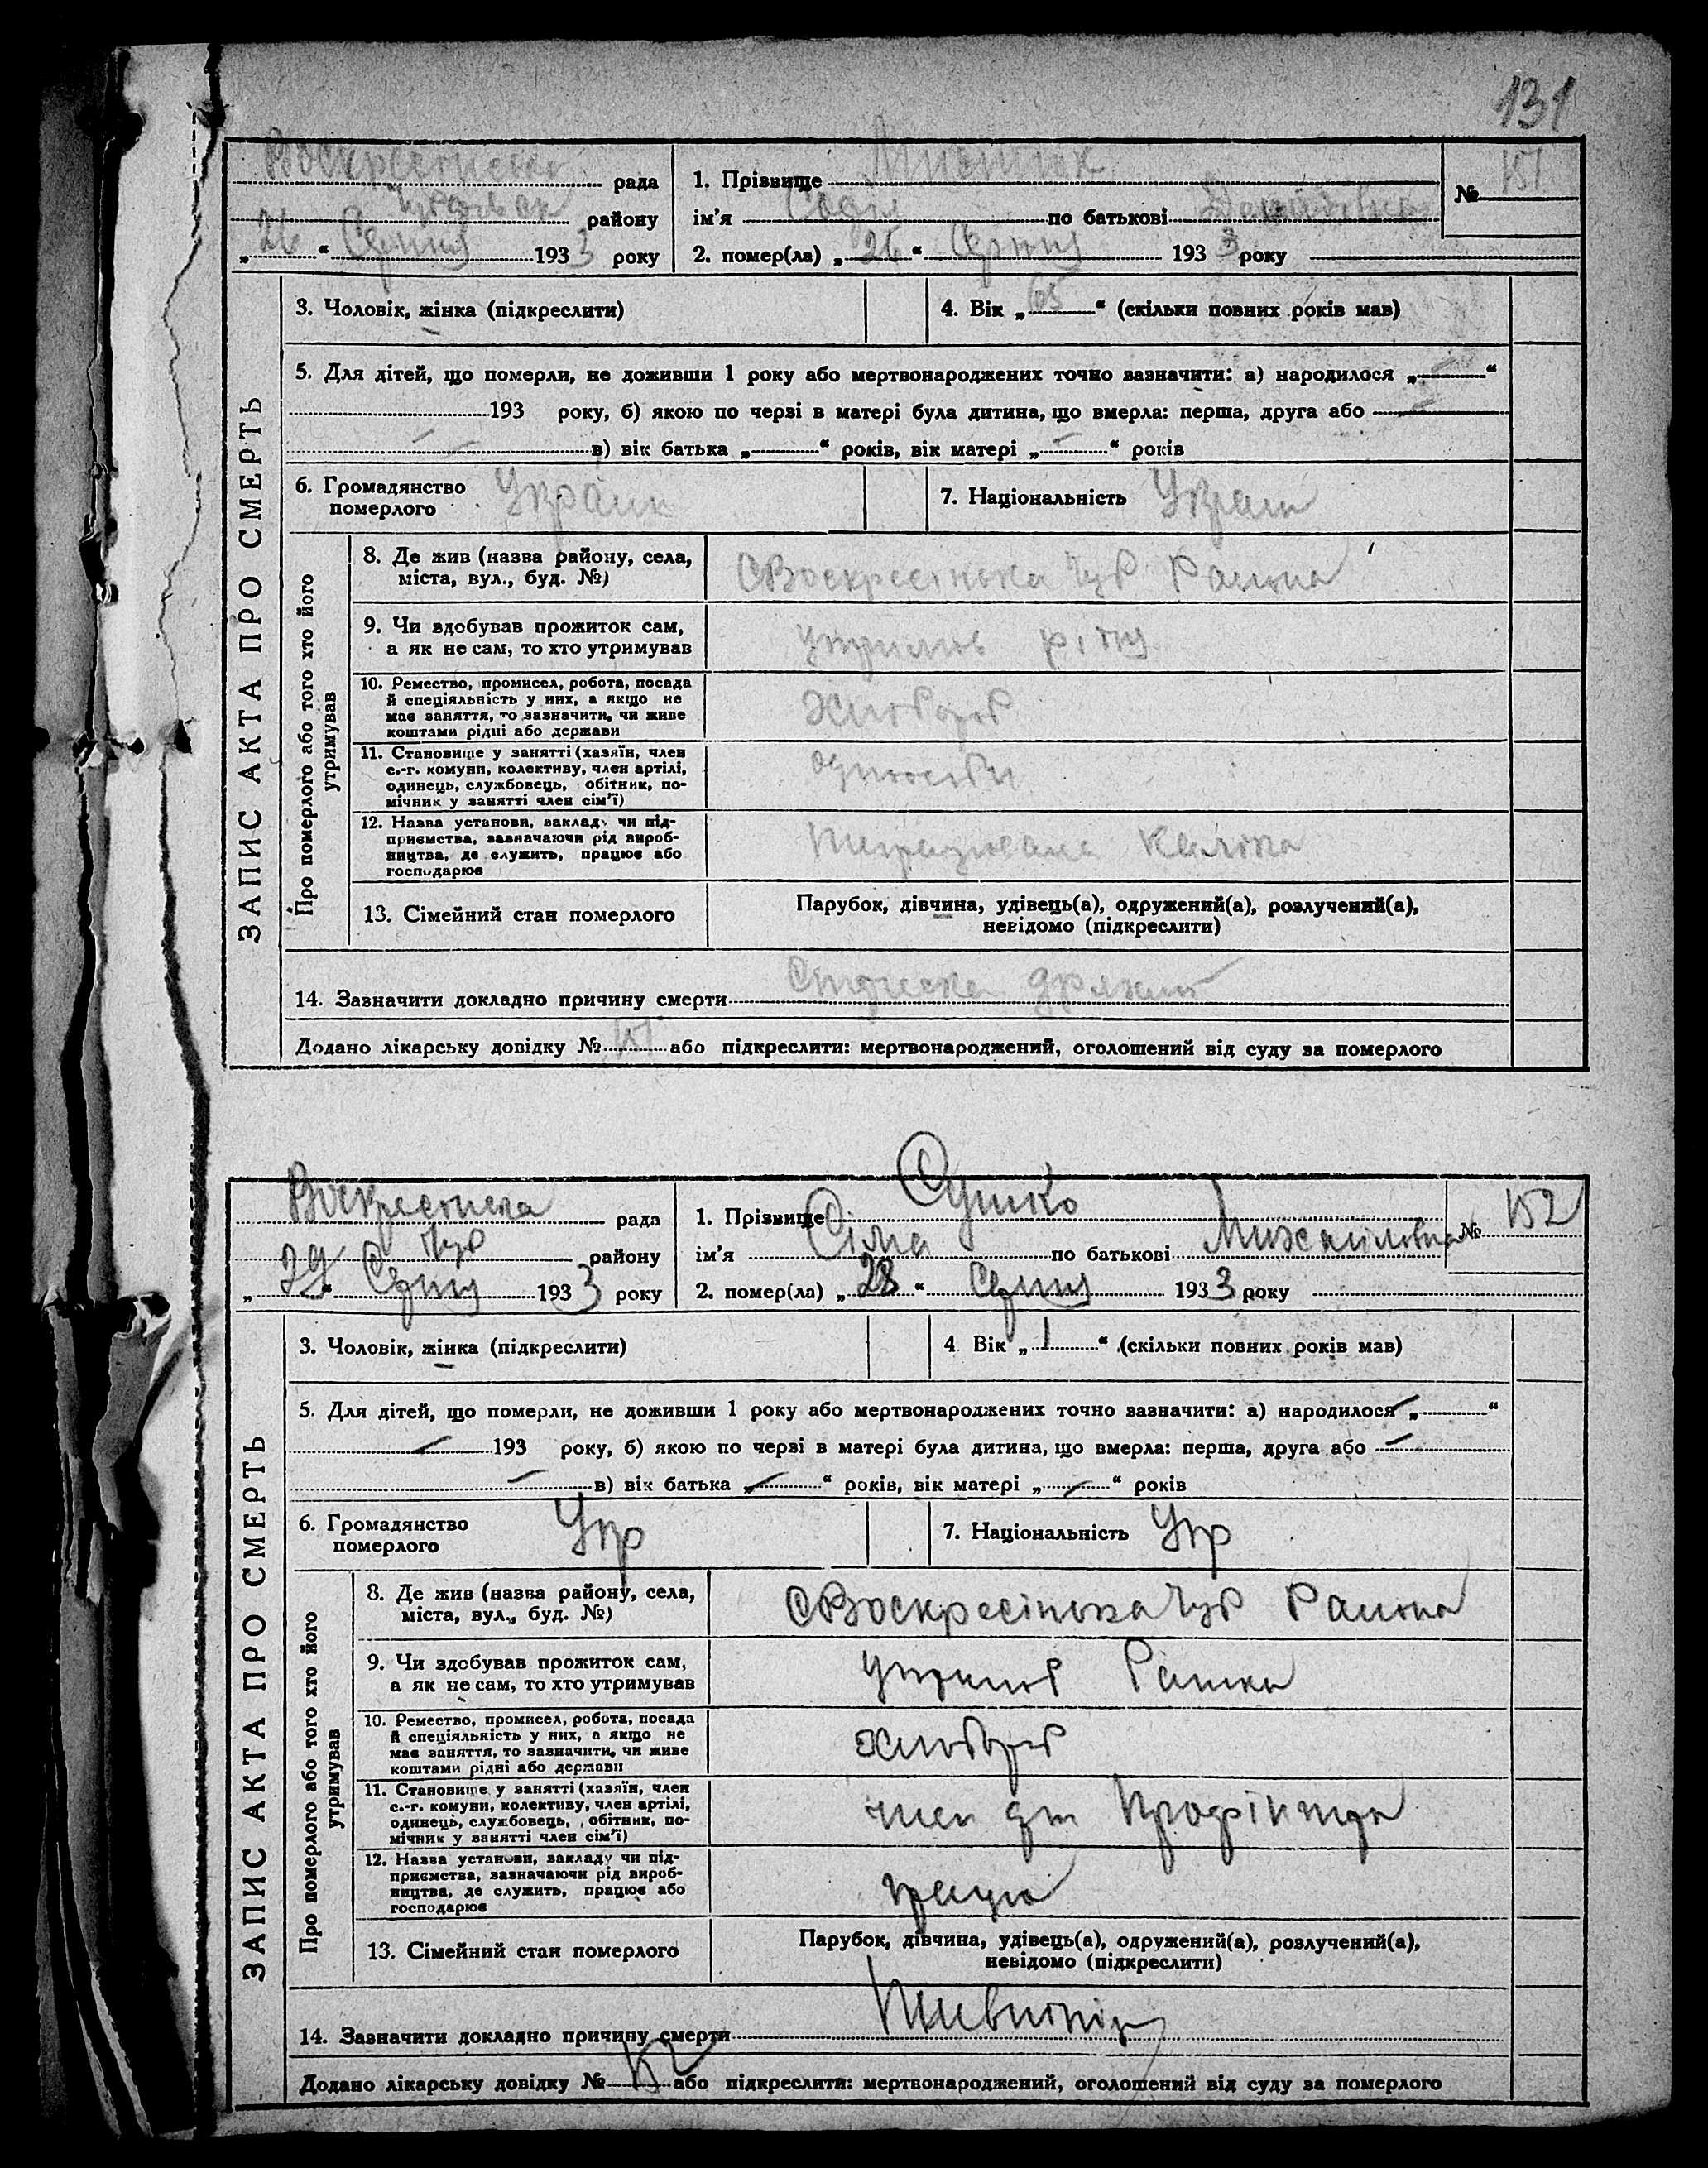 131
Воскресенська рада
района району
„ 26 “ Серпня 1933 року
1. Прізвище
ім'я Софія по батькові
№ 151
2. помер(ла) „ 26 “ Серпня 1933 року
ЗАПИС АКТА ПРО СМЕРТЬ
3. Чоловік, жінка (підкреслити)
4. Вік „ 65 “ (скільки повних років мав)
5. Для дітей, що померли, не доживши 1 року або мертвонароджених точно зазначити: а) народилося „ “
193 року, б) якою по черзі в матері була дитина, що вмерла: перша, друга або
в) вік батька „ “ років, вік матері „ “ років
6. Громадянство померлого Україн
7. Національність Украин
Про померлого або того хто його утримував
8. Де жив (назва району, села,
міста, вул., буд. №)
С Воскресінська Чуб Району
9. Чи здобував прожиток сам,
а як не сам, то хто утримував
10. Ремество, промисел, робота, посада
й спеціяльність у них, а якщо не
має заняття, то зазначити, чи живе
коштами рідні або держави
Хлібороб
11. Становище у занятті (хазяїн, член
с.-г. комуни, колективу, член артілі,
одинець, службовець, обітник, по-
мічник у занятті член сім'ї)
12. Назва установи, закладу чи під-
приємства, зазначаючи рід вироб-
ництва, де служить, працює або
господарює
13. Сімейний стан померлого
Парубок, дівчина, удівець(а), одружений(а), розлучений(а),
невідомо (підкреслити)
14. Зазначити докладно причину смерти
Додано лікарську довідку № 151 або підкреслити: мертвонароджений, оголошений від суду за померлого
Воскресенська рада
Чуб району
„ 29 “ Серпня 1933 року
1. Прізвище Сушко
ім'я Сіма по батькові Михайловна
№ 152
2. помер(ла) „ 28 “ Серпня 1933 року
ЗАПИС АКТА ПРО СМЕРТЬ
3. Чоловік, жінка (підкреслити)
4 Вік „ 1 “ (скільки повних років мав)
5. Для дітей, що померли, не доживши 1 року або мертвонароджених точно зазначити: а) народилося „ “
193 року, б) якою по черзі в матері була дитина, що вмерла: перша, друга або
в) вік батька „ “ років, вік матері „ “ років
6. Громадянство померлого Укр
7. Національність Укр
Про померлого або того хто його утримував
8. Де жив (назва району, села,
міста, вул., буд. №)
С Воскресінська Чуб Району
9. Чи здобував прожиток сам,
а як не сам, то хто утримував
10. Ремество, промисел, робота, посада
й спеціяльність у них, а якщо не
має заняття, то зазначити, чи живе
коштами рідні або держави
Хлібороб
11. Становище у занятті (хазяїн, член
с.-г. комуни, колективу, член артілі,
одинець, службовець, обітник, по-
мічник у занятті член сім'ї)
член арт Профінтерн
12. Назва установи, закладу чи під-
приємства, зазначаючи рід вироб-
ництва, де служить, працює або
господарює
працює
13. Сімейний стан померлого
Парубок, дівчина, удівець(а), одружений(а), розлучений(а),
невідомо (підкреслити)
14. Зазначити докладно причину смерти
Додано лікарську довідку № 152 або підкреслити: мертвонароджений, оголошений від суду за померлого